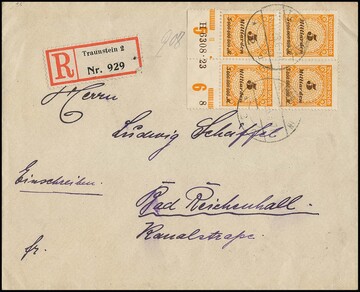 Traunstein 2
R
Nr. 929
908
H 6308.23
6
8
5
Milliarden
5
Milliarden
5
Milliarden
5
Milliarden
Herrn
Ludwig Schaffel
Einschreiben.
Bad Reichenhall.
Kanalstraße.
fr.